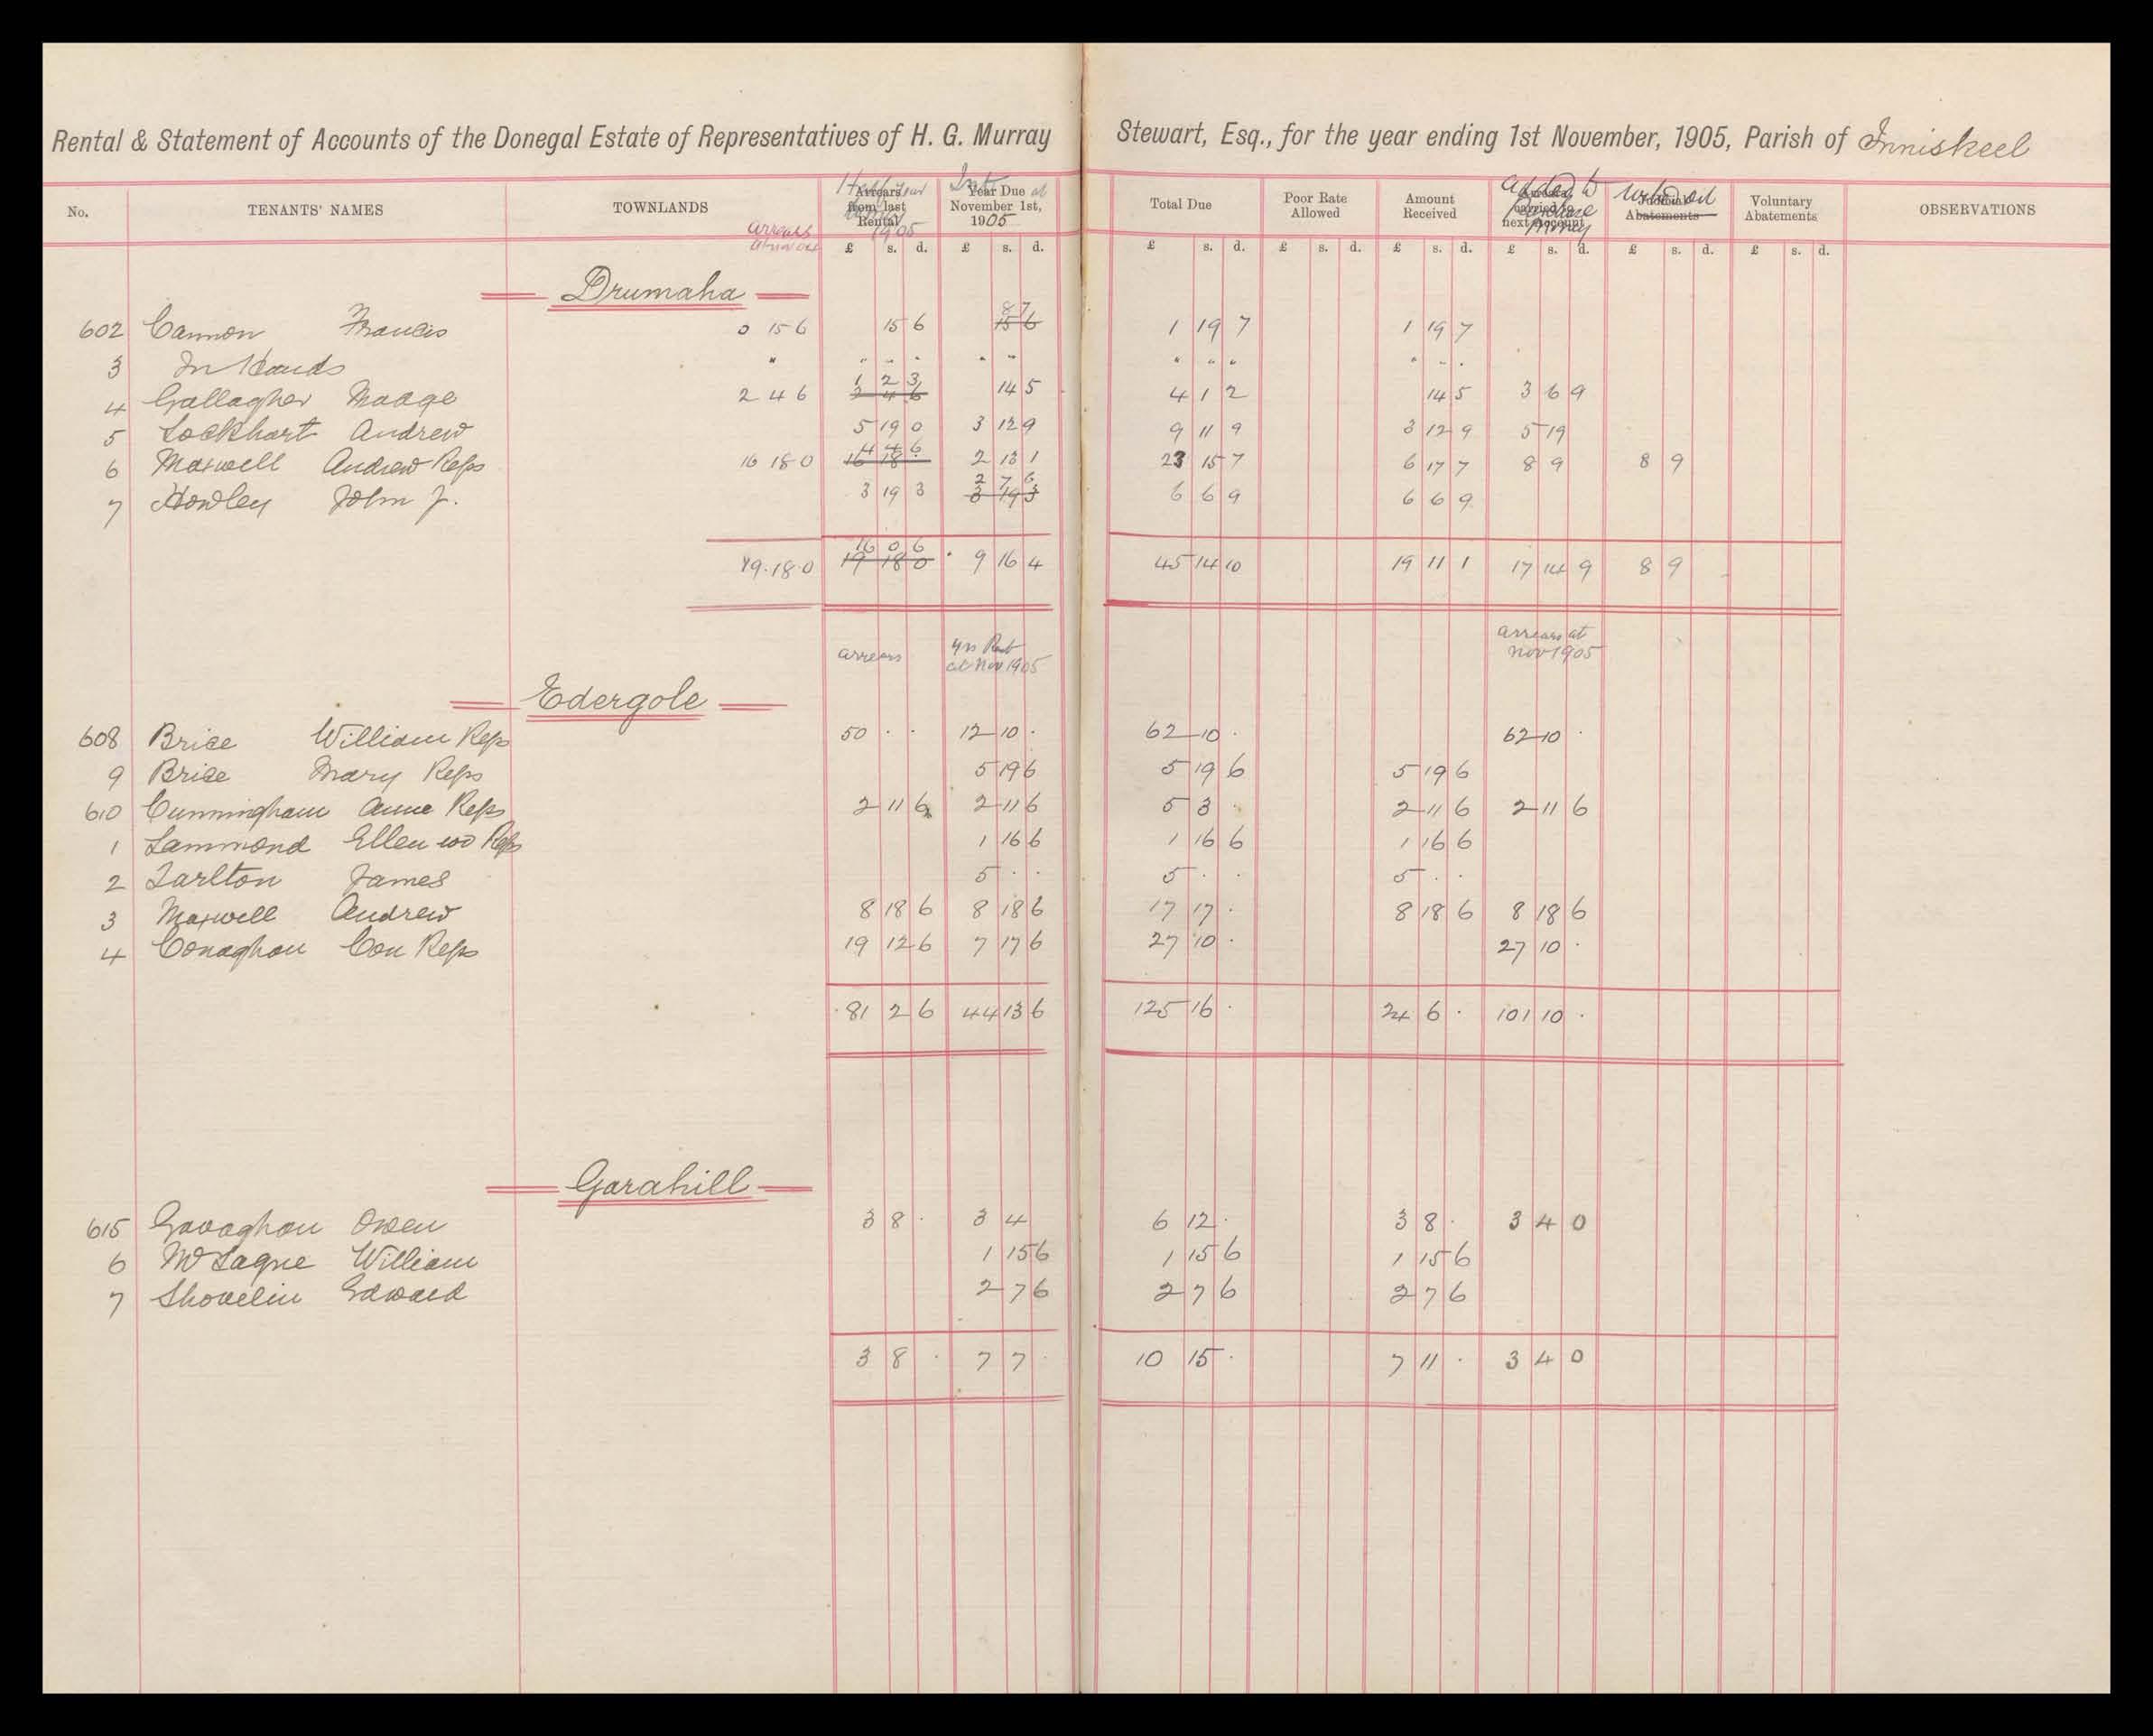 Rental & Statement of Accounts of the Donegal Estate of Representatives of H. G. Murray Stewart, Esq., for the year ending 1st November, 1905, Parish of Inniskeel
No. TENANTS' NAMES TOWNLANDS Arrears from last Rental Year Due at November 1st, 1905 Total Due Poor Rate Allowed Amount Received Arrears carried to next account Judicial Abatements Voluntary Abatements OBSERVATIONS
Half Year 1905 Inst added to Purchase Money
arrears
£ s. d. £ s. d. £ s. d. £ s. d. £ s. d. £ s. d. £ s. d. £ s. d.
Drumaha
602 Cannon Francis 0 15 6 15 6 15 6 8 7 1 19 7 1 19 7
3 In Hands " " " " " " " " " " " "
4 Gallagher Madge 2 4 6 1 2 3 2 4 6 14 5 4 1 2 14 5 3 6 9
5 Lockhart Andrew 5 19 0 3 12 9 9 11 9 3 12 9 5 19
6 Maxwell Andrew Reps 16 18 0 4 4 6 16 18 2 13 1 23 15 7 6 17 7 8 9 8 9
7 Howley John J. 3 19 3 2 7 6 3 19 3 6 6 9 6 6 9
19.18.0 16 0 6 19 18 0 9 16 4 45 14 10 19 11 1 17 14 9 8 9
arrears yrs Rent at Nov 1905 arrears at Nov 1905
Edergole
608 Brice William Reps 50 . . 12 10 . 62 10 . 62 10 .
9 Brice Mary Reps 5 19 6 5 19 6 5 19 6
610 Cunningham Anne Reps 2 11 6 2 11 6 5 3 . 2 11 6 2 11 6
1 Lammond Ellen wo Reps 1 16 6 1 16 6 1 16 6
2 Tarlton James 5 . . 5 . . 5 . .
3 Maxwell Andrew 8 18 6 8 18 6 17 17 . 8 18 6 8 18 6
4 Conaghan Con Reps 19 12 6 7 17 6 27 10 . 27 10 .
81 2 6 44 13 6 125 16 . 24 6 . 101 10 .
Garahill
615 Gavaghan Owen 3 8 . 3 4 6 12 . 3 8 . 3 4 0
6 McLague William 1 15 6 1 15 6 1 15 6
7 Shovelin Edward 2 7 6 2 7 6 2 7 6
3 8 . 7 7 . 10 15 . 7 11 . 3 4 0